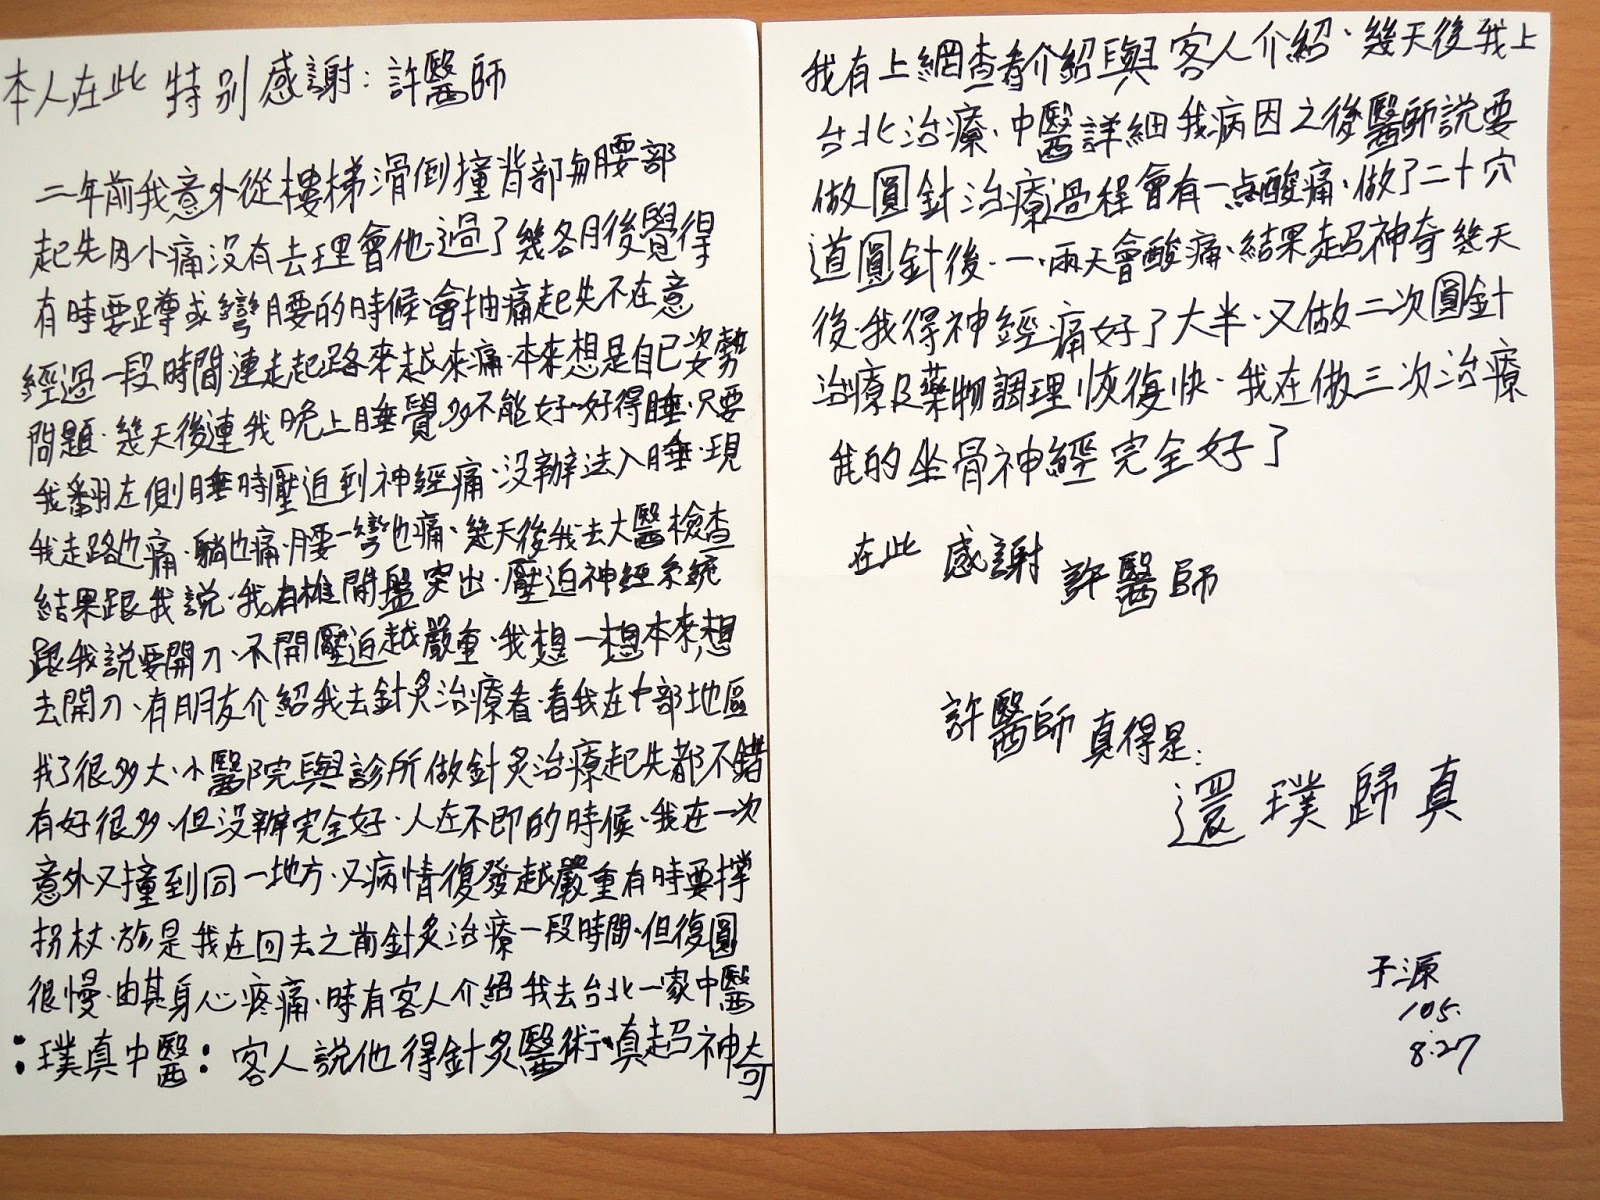 本人在此 特別感謝：許醫師
二年前我意外從樓梯滑倒撞背部與腰部
起先用小痛沒有去理會他、過了幾各月後覺得
有時要蹲或彎腰的時候、會抽痛起先不在意
經過一段時間連走起路來越來痛、本來想是自己姿勢
問題、幾天後連我晚上睡覺多不能好好得睡、只要
我翻左側睡時壓迫到神經痛、沒辦法入睡、現
我走路也痛、躺也痛、腰一彎也痛、幾天後我去大醫檢查
結果跟我說、我有椎間盤突出、壓迫神經系統
跟我說要開刀、不開壓迫越嚴重、我想一想本來想
去開刀、有朋友介紹我去針炙治療看、看我在中部地區
找了很多大、小醫院與診所做針炙治療起先都不錯
有好很多、但沒辦完全好、人在不即的時候、我在一次
意外又撞到同一地方、又病情復發越嚴重有時要撐
拐杖、於是我在回去之前針炙治療一段時間、但復圓
很慢、由其身心疼痛、時有客人介紹我去台北一家中醫
：璞真中醫：客人說他得針炙醫術、真超神奇
我有上網查看介紹與客人介紹、幾天後我上
台北治療、中醫詳細我病因之後醫師說要
做圓針治療過程會有一点酸痛、做了二十穴
道圓針後、一、兩天會酸痛、結果超神奇幾天
後、我得神經痛好了大半、又做二次圓針
治療及藥物調理恢復快、我在做三次治療
我的坐骨神經完全好了
在此 感謝 許醫師
許醫師真得是：
還璞歸真
子源
105.
8.27